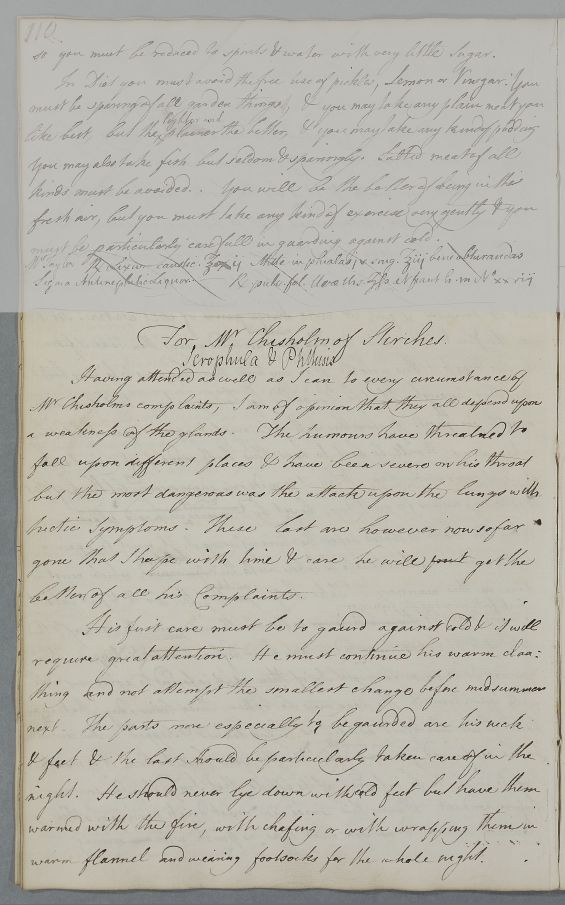 110
so you must be reduced to spirits & water with very little Sugar.
In Diet you must avoid the free use of pickles, Lemon or Vinegar. You
must be sparing of all garden things, & you may take any plain meat you
like best, but the lighter and plainer the better, & you may take any kind of pudding
You may also take fish but seldom & sparingly. Salted meats of all
kinds must be avoided. You will be the better of being in the
fresh air, but you must take any kind of exercise very gently & you
must be particularly carefull in guarding against cold.
Mr. Taylor ℞ Lixiv. caustic. Mitte in phialas sing. bene obturandas
Signa Antinephritic liquor. ℞ pulv. fol. Uvae Urs.
For Mr. Chisholm of Stirches.
Scrophula & Phthisis
Having attended as well as I can to every circumstance of
Mr Chisholms complaints, I am of opinion that they all depend upon
a weakness of the glands. The humours have threatned to
fall upon different places & have been severe on his throat
but the most dangerous was the attack upon the lungs with
hectic Symptoms. These last are however now so far
gone that I hope with time & care he will get the
better of all his Complaints.
His first care must be to gaurd against Cold & it will
require great attention. He must continue his warm cloa:
thing and not attempt the smallest change before midsummer
next. The parts more especially to be gaurded are his neck
& feet & the last should be particularly taken care of in the
night. He should never lye down with cold feet but have them
warmed with the fire, with chafing or with wrapping them in
warm flannel and wearing footsocks for the whole night.